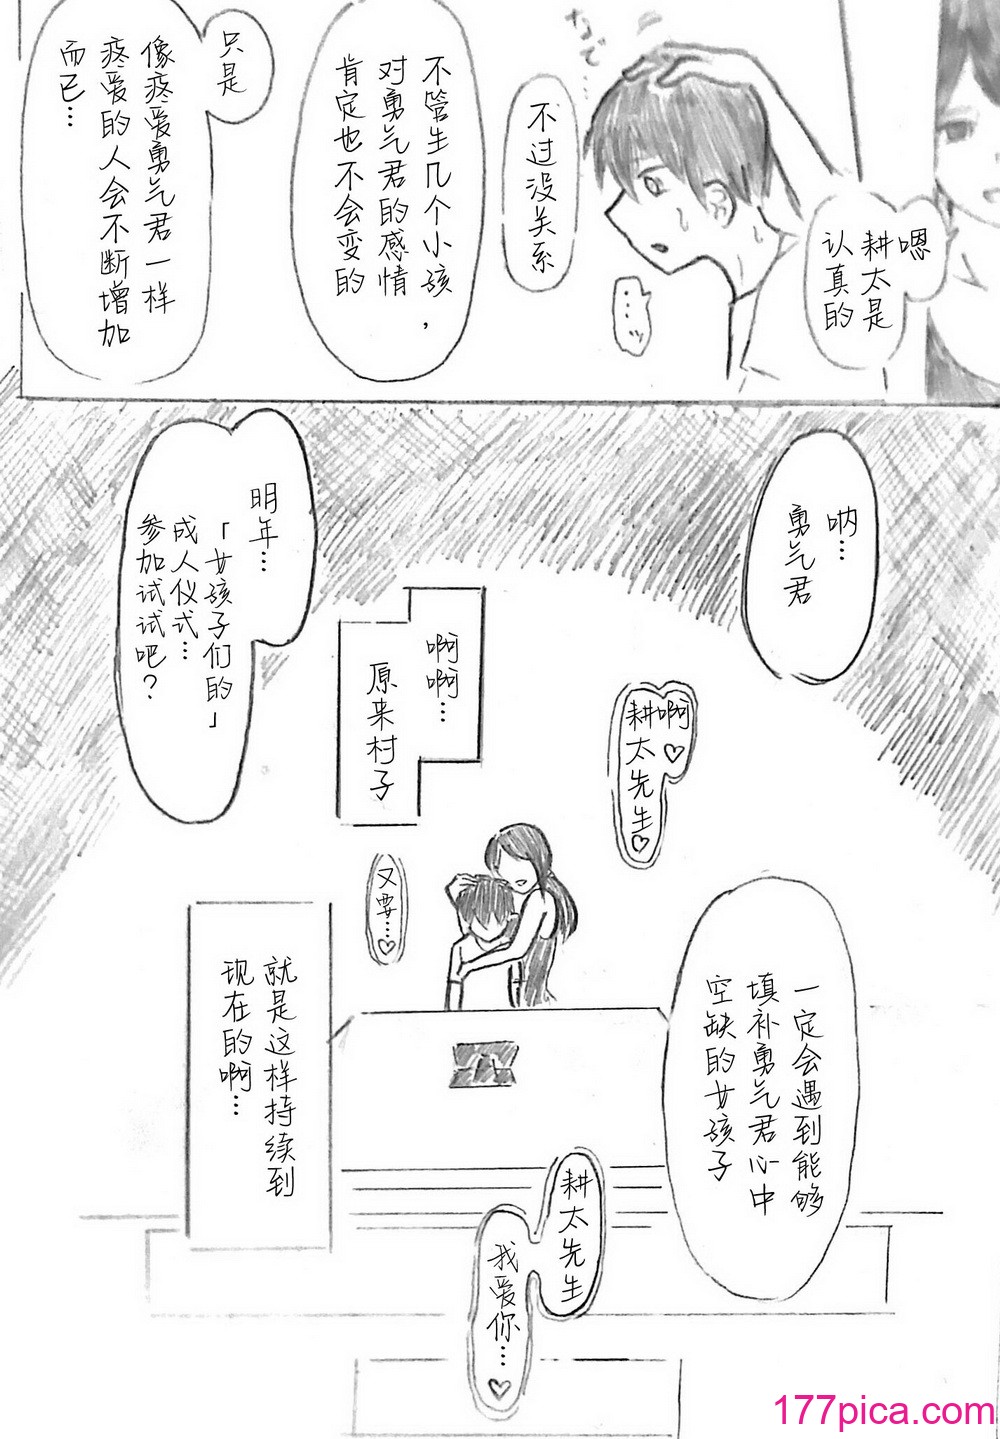 嗯
耕太是
认真的
なで…
不过没关系
…ッ
不管生几个小孩，
对勇气君的感情
肯定也不会变的
只是
像疼爱勇气君一样
疼爱的人会不断增加
而已…
呐…
勇气君
明年…
「女孩子们的」
成人仪式…
参加试试吧？
啊啊…
原来村子
啊♡
耕太先生♡
又要…♡
一定会遇到能够
填补勇气君心中
空缺的女孩子
就是这样持续到
现在的啊…
耕太先生
我爱你…♡
177pica.com